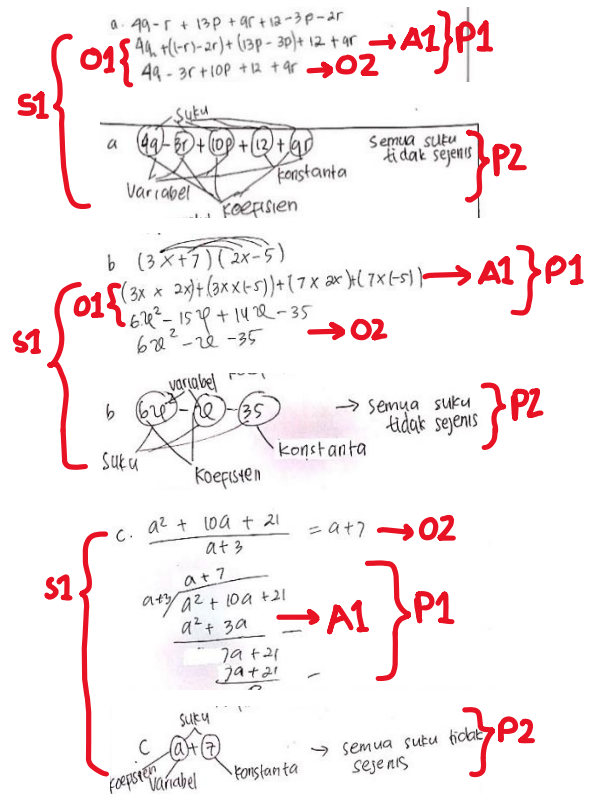 a. 4q - r + 13p + qr + 12 - 3p - 2r
S1 O1 { 4q + ((-r) - 2r) + (13p - 3p) + 12 + qr → A1 } P1
4q - 3r + 10p + 12 + qr → O2
suku
a 4q - 3r + 10p + 12 + qr semua suku tidak sejenis } P2
Variabel konstanta
koefisien
b (3x + 7)(2x - 5)
S1 O1 { (3x × 2x) + (3x × (-5)) + (7 × 2x) + (7 × (-5)) → A1 } P1
6x² - 15x + 14x - 35
6x² - x - 35 → O2
variabel
b 6x² - x - 35 → semua suku tidak sejenis } P2
suku konstanta
koefisien
S1
c. a² + 10a + 21 = a + 7 → O2
a + 3
a + 7
a+3 a² + 10a + 21 → A1 } P1
a² + 3a -
7a + 21
7a + 21 -
0
suku
C a + 7 → semua suku tidak sejenis } P2
koefisien Variabel konstanta